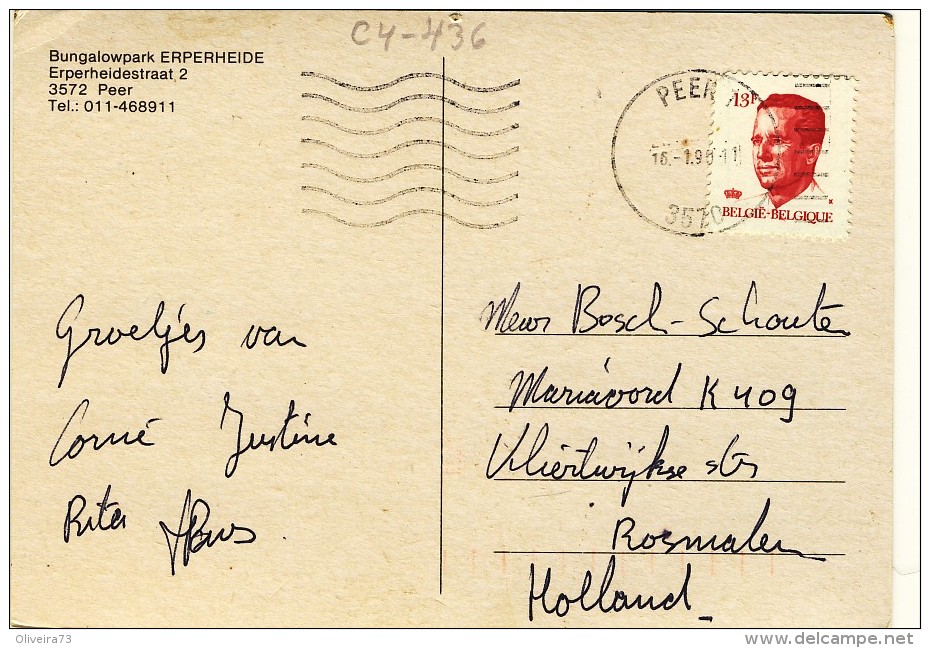 C4-436
Bungalowpark ERPERHEIDE
Erperheidestraat 2
3572 Peer
Tel.: 011-468911
PEER
16.-1.90-11
3570
13F
BELGIË-BELGIQUE
Groetjes van
Corné Justine
Rita Hans
Mevr Bosch-Schouten
Mariavoord K 409
Vliertwijkse str
Rosmalen
Holland
Oliveira73
www.delcampe.net